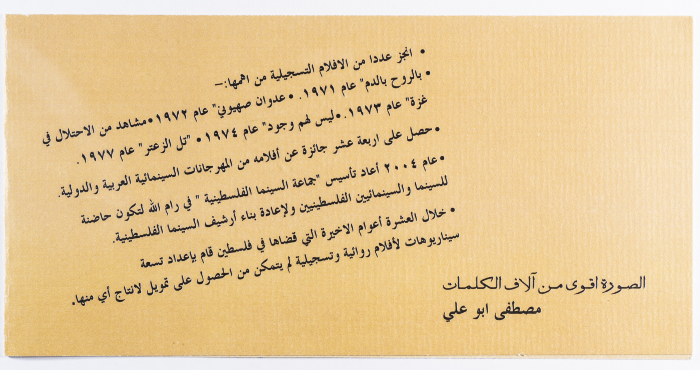 • انجز عددا من الافلام التسجيلية من اهمها:–
• بالروح بالدم" عام ١٩٧١. • عدوان صهيوني" عام ١٩٧٢ • مشاهد من الاحتلال في
غزة" عام ١٩٧٣. • ليس لهم وجود" عام ١٩٧٤ • "تل الزعتر" عام ١٩٧٧.
• حصل على اربعة عشر جائزة عن أفلامه من المهرجانات السينمائية العربية والدولية.
• عام ٢٠٠٤ أعاد تأسيس "جماعة السينما الفلسطينية " في رام الله لتكون حاضنة
للسينما والسينمائيين الفلسطينيين ولإعادة بناء أرشيف السينما الفلسطينية.
• خلال العشرة أعوام الاخيرة التي قضاها في فلسطين قام بإعداد تسعة
سيناريوهات لأفلام روائية وتسجيلية لم يتمكن من الحصول على تمويل لانتاج أي منها.
الصورة اقوى من آلاف الكلمات
مصطفى ابو علي